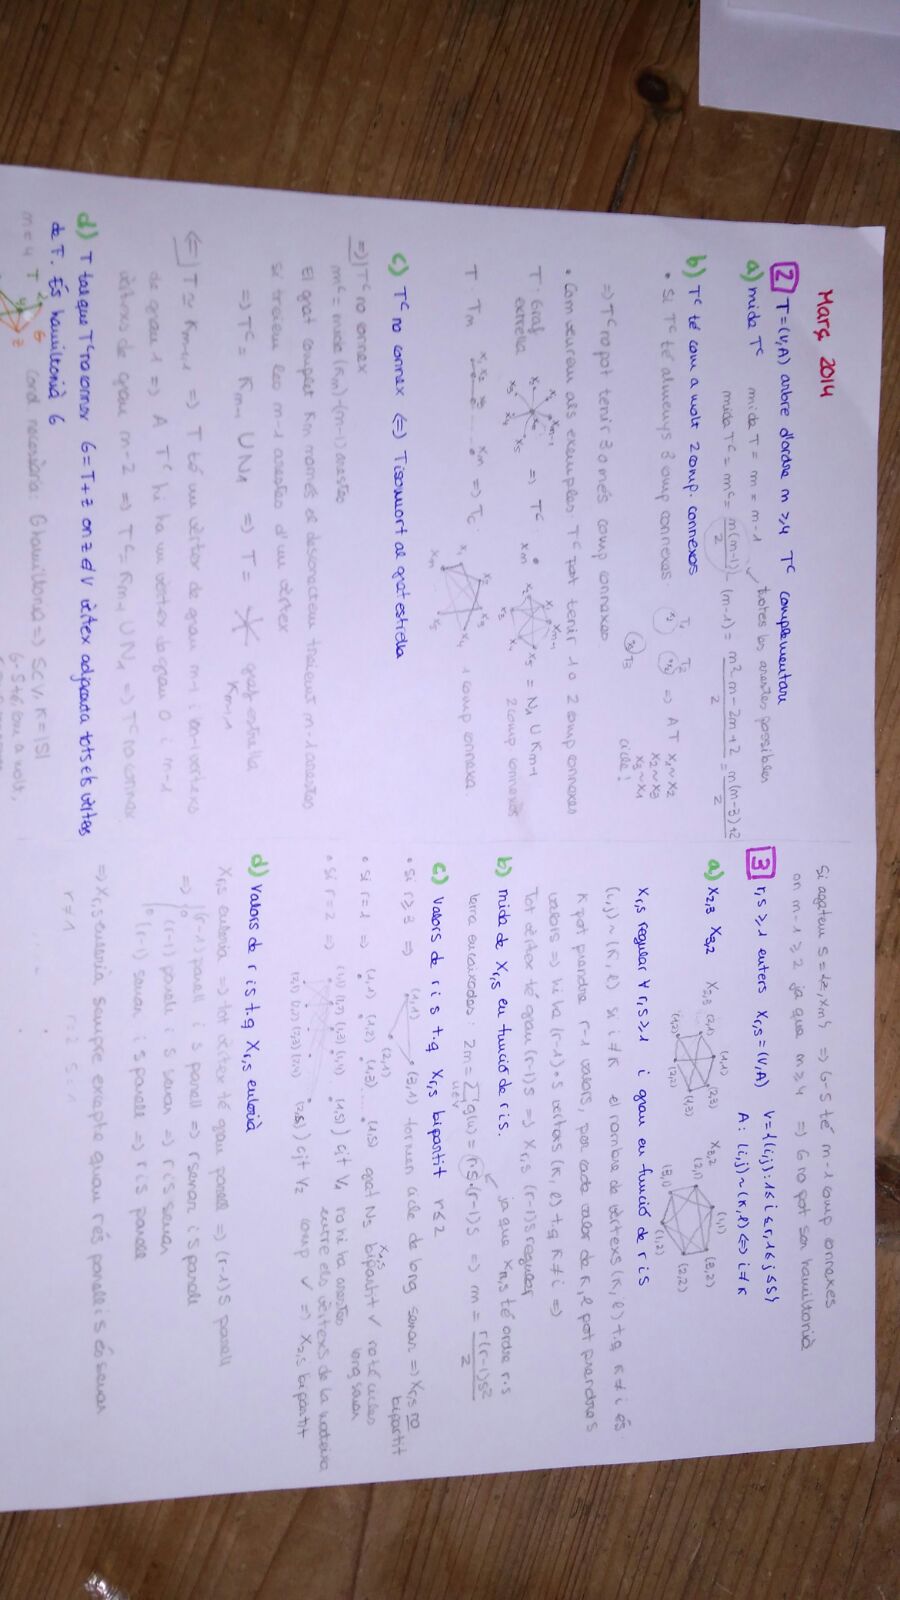 Març 2014
2 T=(V,A) arbre d'ordre m ≥ 4 T^c complementari
a) mida T^c mida T = m = m-1 totes les arestes possibles
mida T^c = m^c = m(m-1)/2 - (m-1) = m²-m-2m+2/2 = m(m-3)+2/2
b) T^c té com a molt 2 comp. connexos
• Si T^c té almenys 3 comp connexos x1 T1 x2 T2 x3 T3 ⇒ A T x1~x2
x2~x3
x3~x1
cicle!
⇒ T^c no pot tenir 3 o més comp connexos
• Com veuram als exemples T^c pot tenir 1 o 2 comp connexos
T: Graf estrella ⇒ T^c: = N1 ∪ Km-1
2 comp connexos
T: Tm x1 x2 x3 ... xm ⇒ Tc: 1 comp connexa
c) T^c no connex ⇔ T isomorf al graf estrella
⇒) T^c no connex
m^c = mida (Km) - (m-1) arestes
El graf complet Km només el desconnectem traient m-1 arestes
si traiem les m-1 arestes d'un vèrtex
⇒ T^c = Km-1 ∪ N1 ⇒ T = graf estrella
K_{m-1,1}
⇐) T ≃ Km-1,1 ⇒ T té un vèrtex de grau m-1 i m-1 vèrtexs
de grau 1 ⇒ A T^c hi ha un vèrtex de grau 0 i m-1
vèrtexs de grau m-2 ⇒ T^c = Km-1 ∪ N1 ⇒ T^c no connex
d) T tas que T^c no connex G = T+z on z∉V vèrtex adjacent a tots els vèrtexs
de T. És hamiltonià G
m=4 T G cond necessària: G hamiltonià ⇒ S⊂V, k=|S|
G-S té com a molt,
Si agafem S = {z, xm} ⇒ G-S té m-1 comp connexes
on m-1 ≥ 2 ja que m ≥ 4 ⇒ G no pot ser hamiltonià
3 r,s ≥ 1 enters X_{r,s} = (V,A) V = {(i,j): 1≤i≤r, 1≤j≤s}
A: (i,j)~(k,l) ⇔ i≠k
a) X2,3 X3,2 X2,3 (2,1) (1,1) (2,3) (1,3) (2,2) (1,2) X3,2 (2,1) (1,1) (3,2) (2,2) (1,2) (3,1)
X_{r,s} regular ∀r,s≥1 i grau en funció de r i s
(i,j) ~ (k,l) si i≠k el nombre de vèrtexs (k,l) t.q k≠i és
k pot prendre r-1 valors, per cada valor de k, l pot prendre s
valors ⇒ hi ha (r-1)·s vèrtexs (k,l) t.q k≠i ⇒
Tot vèrtex té grau (r-1)s ⇒ X_{r,s} (r-1)s regular
b) mida de X_{r,s} en funció de r i s. ja que X_{r,s} té ordre r·s
lema encaixades: 2m = Σ_{u∈V} g(u) = r·s·(r-1)s ⇒ m = r(r-1)s²/2
c) valors de r i s t.q X_{r,s} bipartit r≤2
• Si r≥3 ⇒ (1,1) (2,1) (3,1) formen cicle de long senar ⇒ X_{r,s} no
bipartit
• Si r=1 ⇒ (1,1) (1,2) (1,3) ... (1,s) graf Ns X_{1,s} bipartit ✓ no té cicles
long senar
• Si r=2 ⇒ (1,1) (1,2) (1,3) (1,4) (1,s)) cjt V1 no hi ha arestes
entre els vèrtexs de la mateixa
(2,1) (2,2) (2,3) (2,4) (2,s)) cjt V2 comp ✓ ⇒ X_{2,s} bipartit
d) valors de r i s t.q X_{r,s} eulerià
X_{r,s} eulerià ⇒ tot vèrtex té grau parell ⇒ (r-1)s parell
⇒ (r-1) parell i s parell ⇒ r senar i s parell
o (r-1) parell i s senar ⇒ r i s senar
o (r-1) senar i s parell ⇒ r i s parell
⇒ X_{r,s} eulerià sempre excepte quan r és parell i s és senar
r≠1